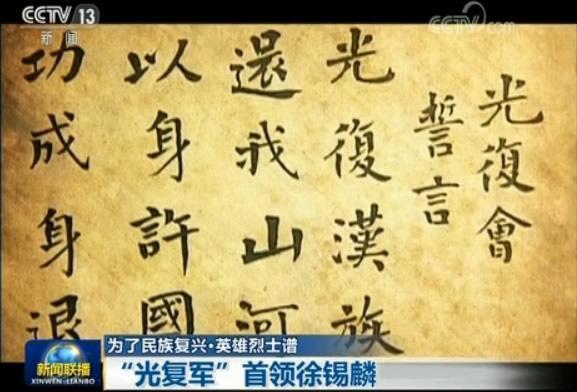 CCTV 13
新闻
CCTV.com
光復會
誓言
光復漢族
還我山河
以身許國
功成身退
为了民族复兴·英雄烈士谱
新闻联播
XINWEN LIANBO
“光复军”首领徐锡麟